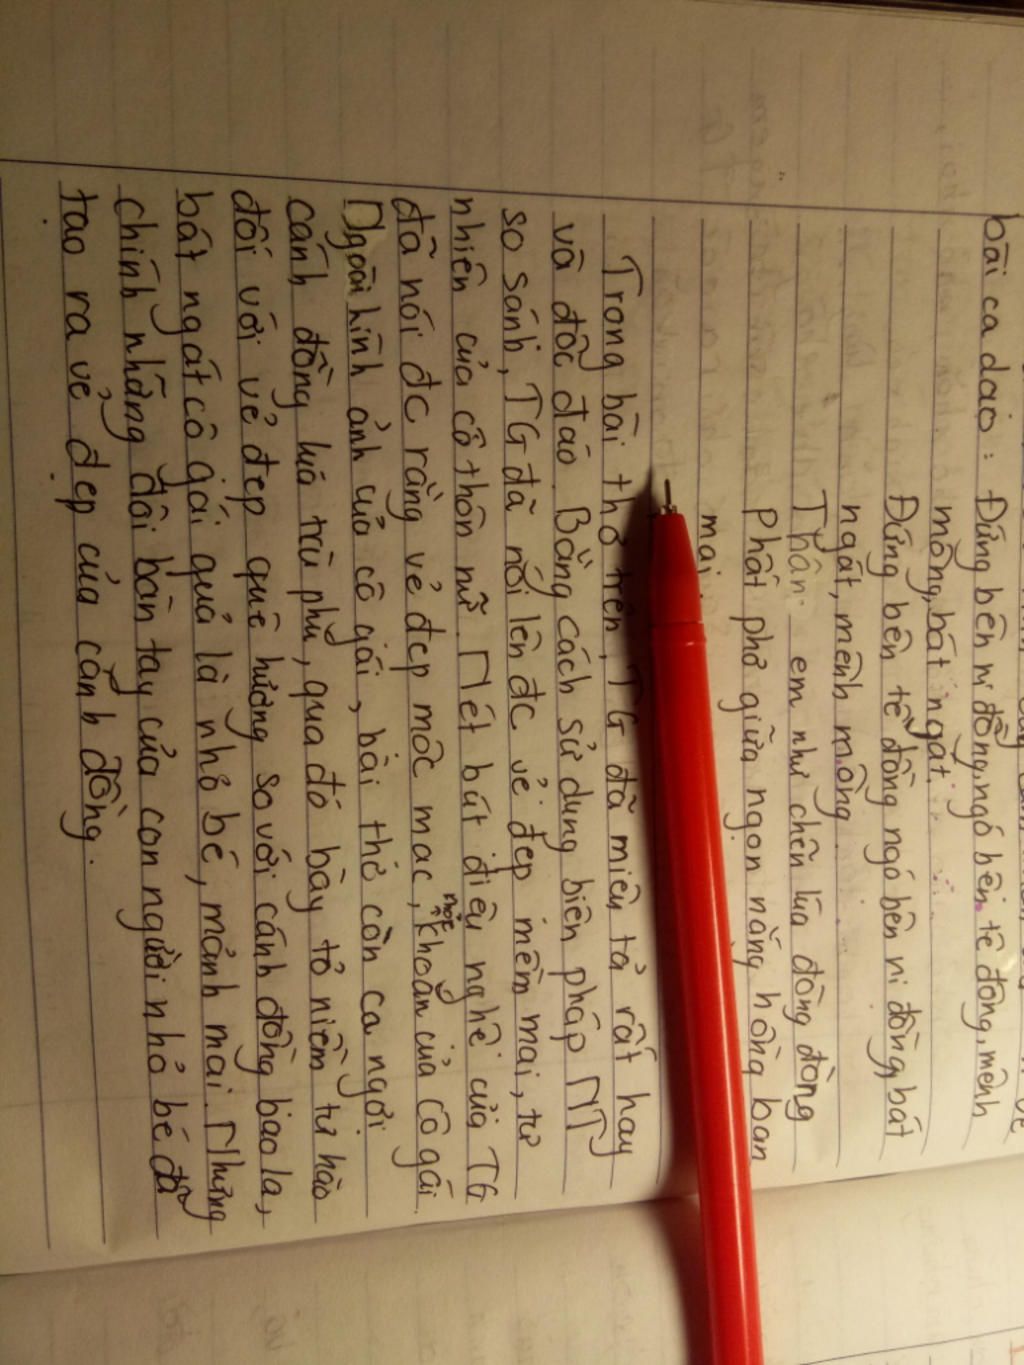 bài ca dao: Đứng bên ni đồng, ngó bên tê đồng, mênh
mông, bát ngát.
Đứng bên tê đồng ngó bên ni đồng, bát
ngát, mênh mông
Thân em như chẽn lúa đòng đòng
Phất phơ giữa ngọn nắng hồng ban
mai.
Trong bài thơ trên, TG đã miêu tả rất hay
và độc đáo. Bằng cách sử dụng biện pháp NT
so sánh, TG đã nói lên đc vẻ đẹp mềm mại, tự
nhiên của cô thôn nữ. Nét bút điêu nghệ của TG
đã nói đc rằng vẻ đẹp mộc mạc, khoắn của cô gái.
Ngoài hình ảnh của cô gái, bài thơ còn ca ngợi
cánh đồng lúa trù phú, qua đó bày tỏ niềm tự hào
đối với vẻ đẹp quê hương so với cánh đồng bao la,
bát ngát cô gái quả là nhỏ bé, mảnh mai. Nhưng
chính những đôi bàn tay của con người nhỏ bé đã
tạo ra vẻ đẹp của cánh đồng.